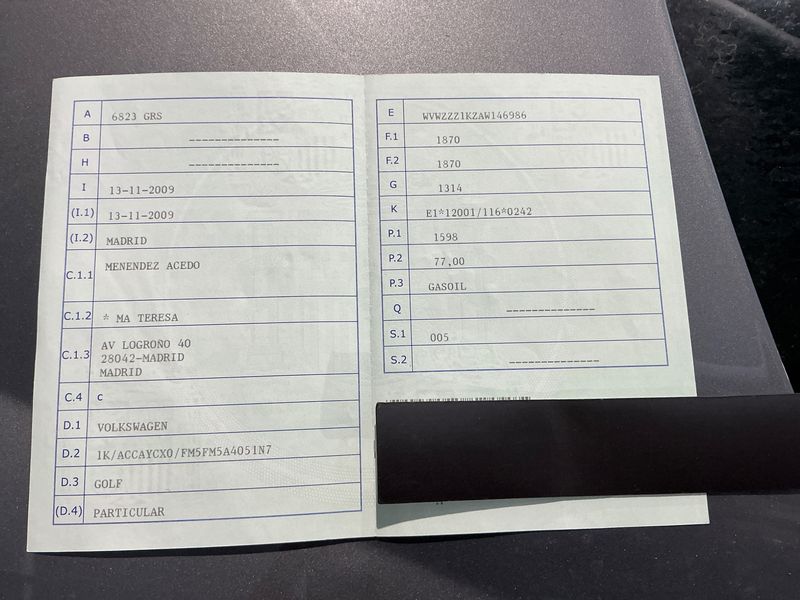 A 6823 GRS
B --------------
H --------------
I 13-11-2009
(I.1) 13-11-2009
(I.2) MADRID
C.1.1 MENENDEZ ACEDO
C.1.2 * MA TERESA
C.1.3 AV LOGROÑO 40
28042-MADRID
MADRID
C.4 c
D.1 VOLKSWAGEN
D.2 1K/ACCAYCX0/FM5FM5A4051N7
D.3 GOLF
(D.4) PARTICULAR
E WVWZZZ1KZAW146986
F.1 1870
F.2 1870
G 1314
K E1*12001/116*0242
P.1 1598
P.2 77,00
P.3 GASOIL
Q --------------
S.1 005
S.2 --------------